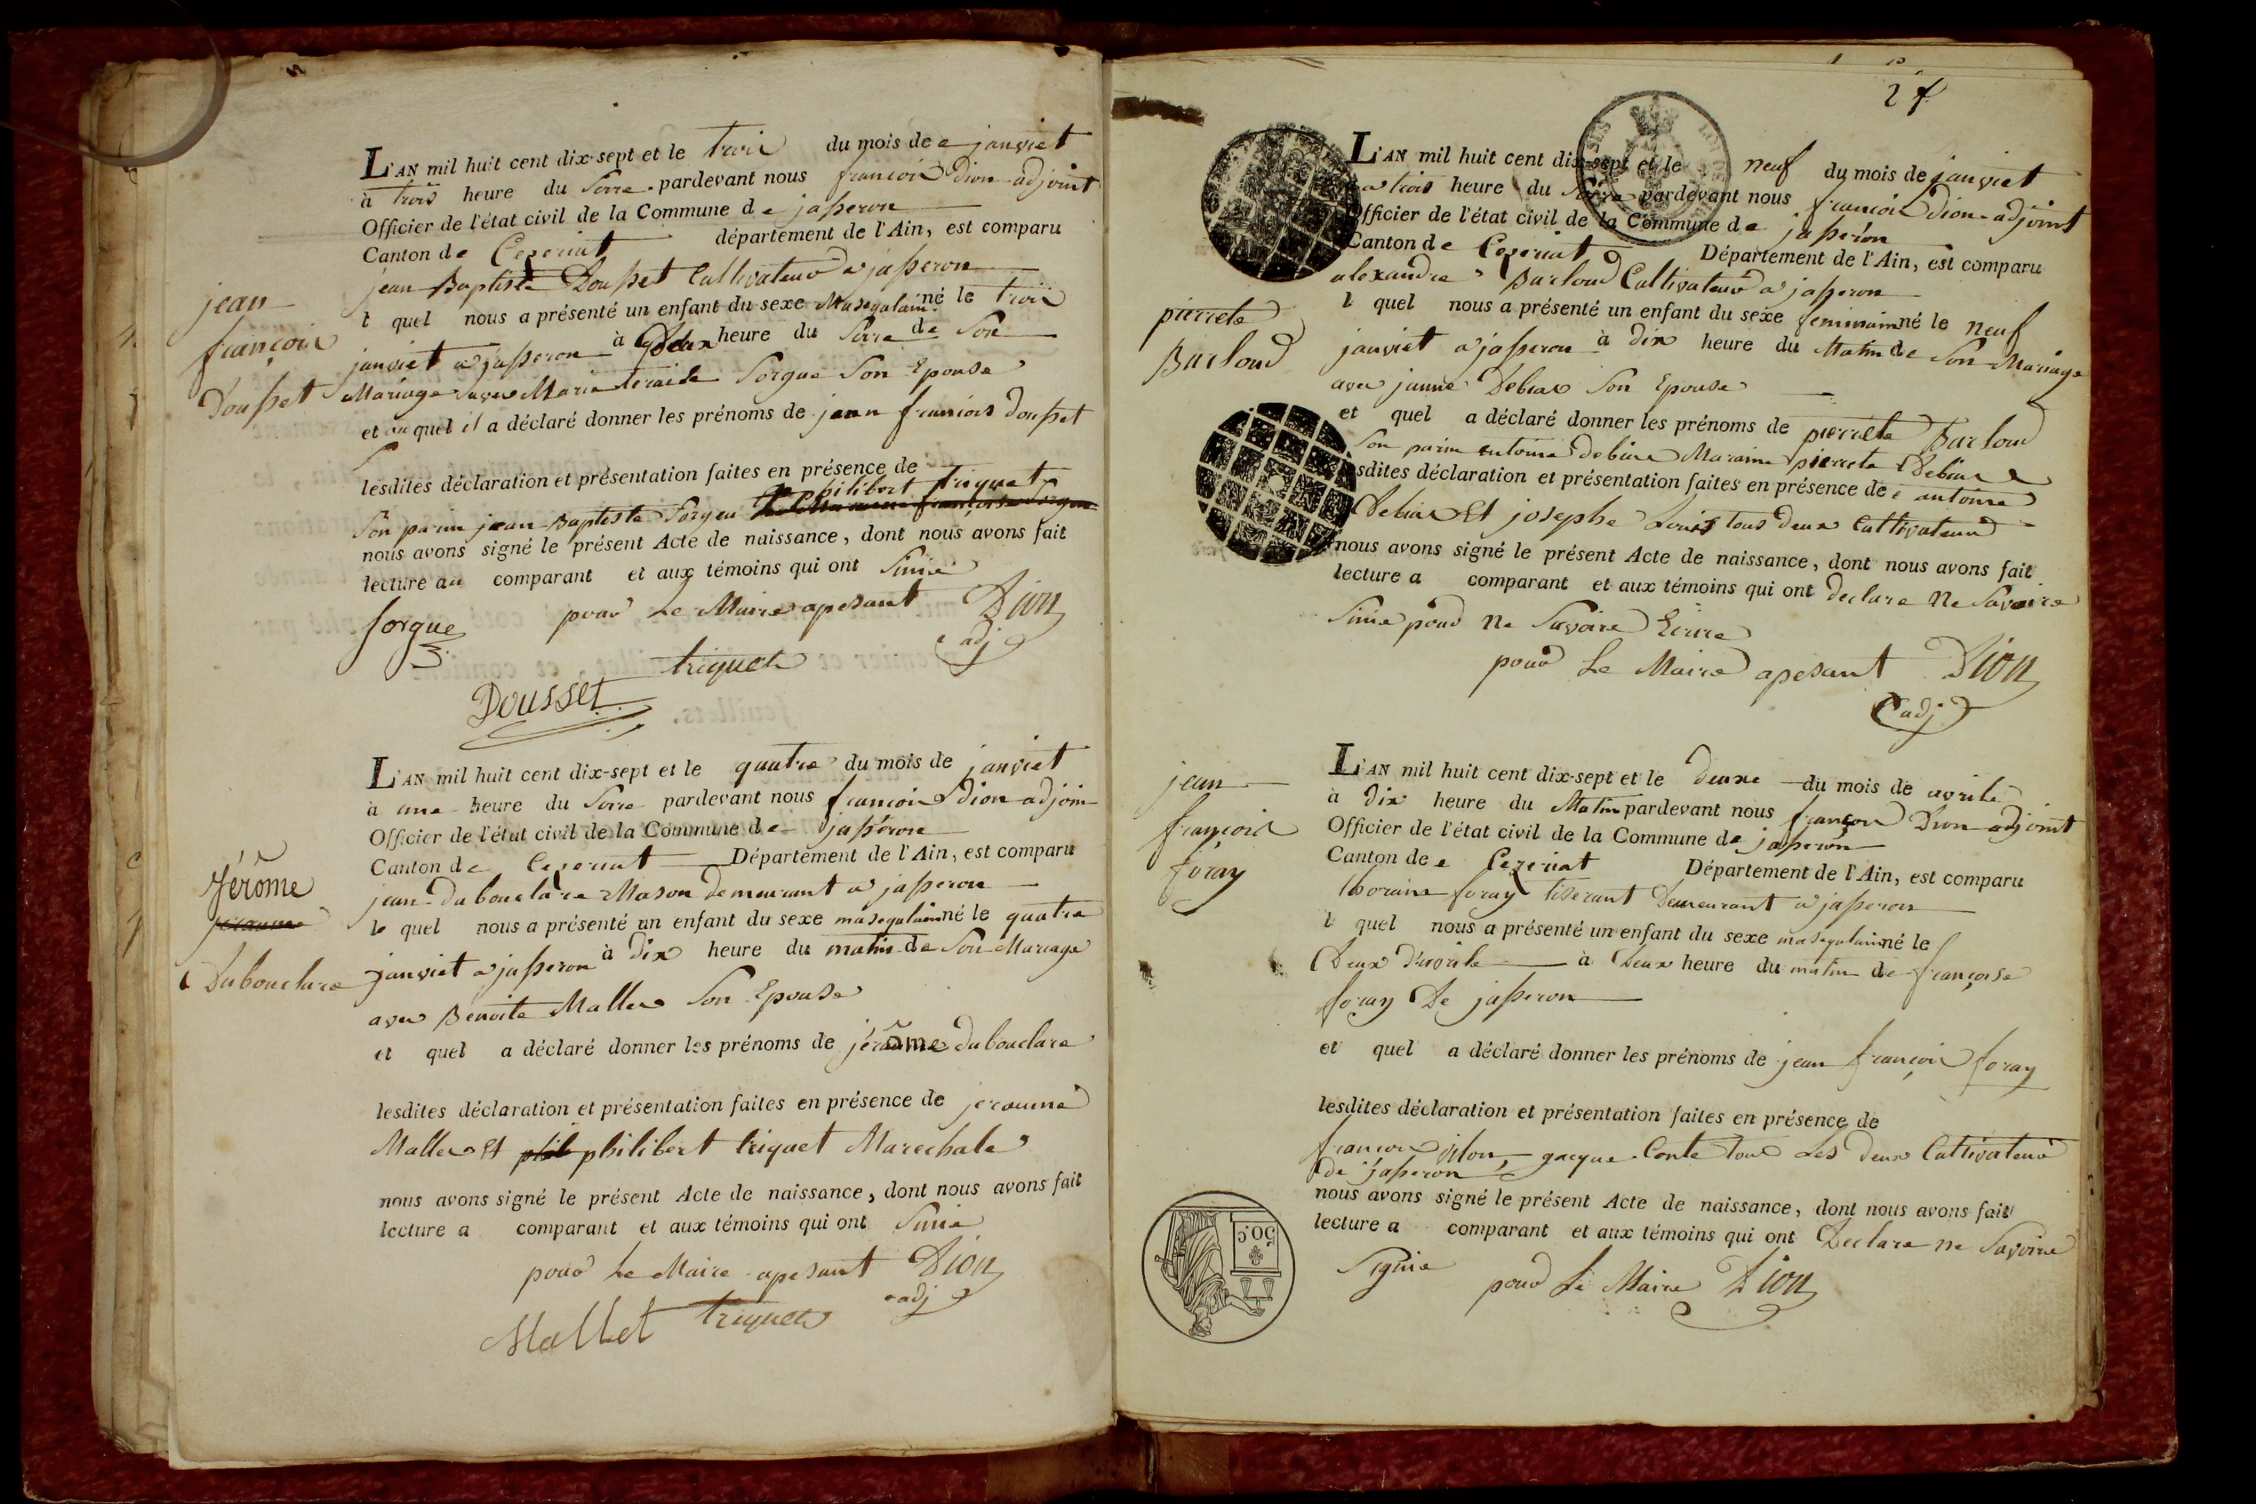 L'AN mil huit cent dix-sept et le trois du mois de janviet
à trois heure du Soire pardevant nous francois Dion adjoint
Officier de l'état civil de la Commune de jasseron
Canton de Cezeriat département de l'Ain, est comparu
jean Baptiste Dousset Cultivateur a jasseron
l quel nous a présenté un enfant du sexe Masegulain né le trois
janviet a jasseron à Deux heure du Soire de Son
Mariage avec Marie teraise Sorgue Son Epouse
et au quel il a déclaré donner les prénoms de jean francois dousset
lesdites déclaration et présentation faites en présence de
philibert triquet
Son parin jean Baptiste Sorgeu
nous avons signé le présent Acte de naissance, dont nous avons fait
lecture au comparant et aux témoins qui ont Sinie
pour Le Maire apesant Dion
adj
Sorgue
triquet
Dousset
jean
françois
Dousset
L'AN mil huit cent dix-sept et le quatre du mois de janviet
à une heure du Soire pardevant nous francois Dion adjoin
Officier de l'état civil de la Commune de jasseron
Canton de Cezeriat Département de l'Ain, est comparu
jean dubouclare Mason demeurant a jasseron
le quel nous a présenté un enfant du sexe masegulain né le quatre
janviet a jasseron à dix heure du matin de Son Mariage
avec Benoite Mallet Son Epouse
et quel a déclaré donner les prénoms de jérôme dubouclare
lesdites déclaration et présentation faites en présence de jeraume
Mallet Et phil philibert triquet Marechale
nous avons signé le présent Acte de naissance, dont nous avons fait
lecture a comparant et aux témoins qui ont Sinie
pour Le Maire apesant Dion
adj
Mallet triquet
Jérôme
jeraume
Dubouclare
27
L'AN mil huit cent dix-sept et le neuf du mois de janviet
a trois heure du Soire pardevant nous francois Dion adjoint
Officier de l'état civil de la Commune de jasseron
Canton de Cezeriat Département de l'Ain, est comparu
alexandre Barloud Cultivateur a jasseron
l quel nous a présenté un enfant du sexe feminain né le neuf
janviet a jasseron à dix heure du Matin de Son Mariage
avec janne Debiar Son Epouse
et quel a déclaré donner les prénoms de pierrete Barloud
Son parin antoine debiar Maraine pierrete Debiar
lesdites déclaration et présentation faites en présence de antoine
Debiar Et josephe Louis tous deux Cultivateur
nous avons signé le présent Acte de naissance, dont nous avons fait
lecture a comparant et aux témoins qui ont declare Ne Savoire
Sinie pour Ne Savoire Ecrire
pour Le Maire apesant Dion
adj
pierrete
Barloud
L'AN mil huit cent dix-sept et le deuxe du mois de avrile
à dix heure du Matin pardevant nous françois Dion adjoint
Officier de l'état civil de la Commune de jasseron
Canton de Cezeriat Département de l'Ain, est comparu
foray tiserant demeurant a jasseron
l quel nous a présenté un enfant du sexe masegulain né le
Deux d'avrile à Deux heure du matin de françoise
foray De jasseron
et quel a déclaré donner les prénoms de jean françois foray
lesdites déclaration et présentation faites en présence de
francois gacque Conte tous Les deux Cultivateur
de jasseron
nous avons signé le présent Acte de naissance, dont nous avons fait
lecture a comparant et aux témoins qui ont Declare ne Savoire
Signie
pour Le Maire Dion
jean
françois
foray
50c